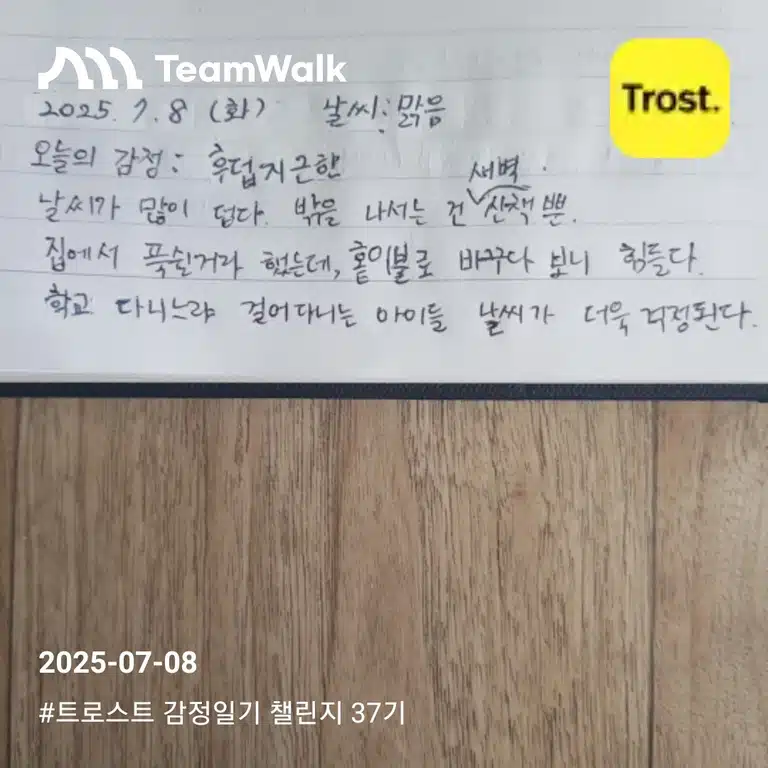 TeamWalk
Trost.
2025. 7. 8 (화) 날씨: 맑음
오늘의 감정: 후덥지근한
새벽
날씨가 많이 덥다. 밖을 나서는 건 산책 뿐.
집에서 푹쉴거라 했는데, 홑이불로 바꾸다 보니 힘들다.
학교 다니느랴 걸어다니는 아이들 날씨가 더욱 걱정된다.
2025-07-08
#트로스트 감정일기 챌린지 37기